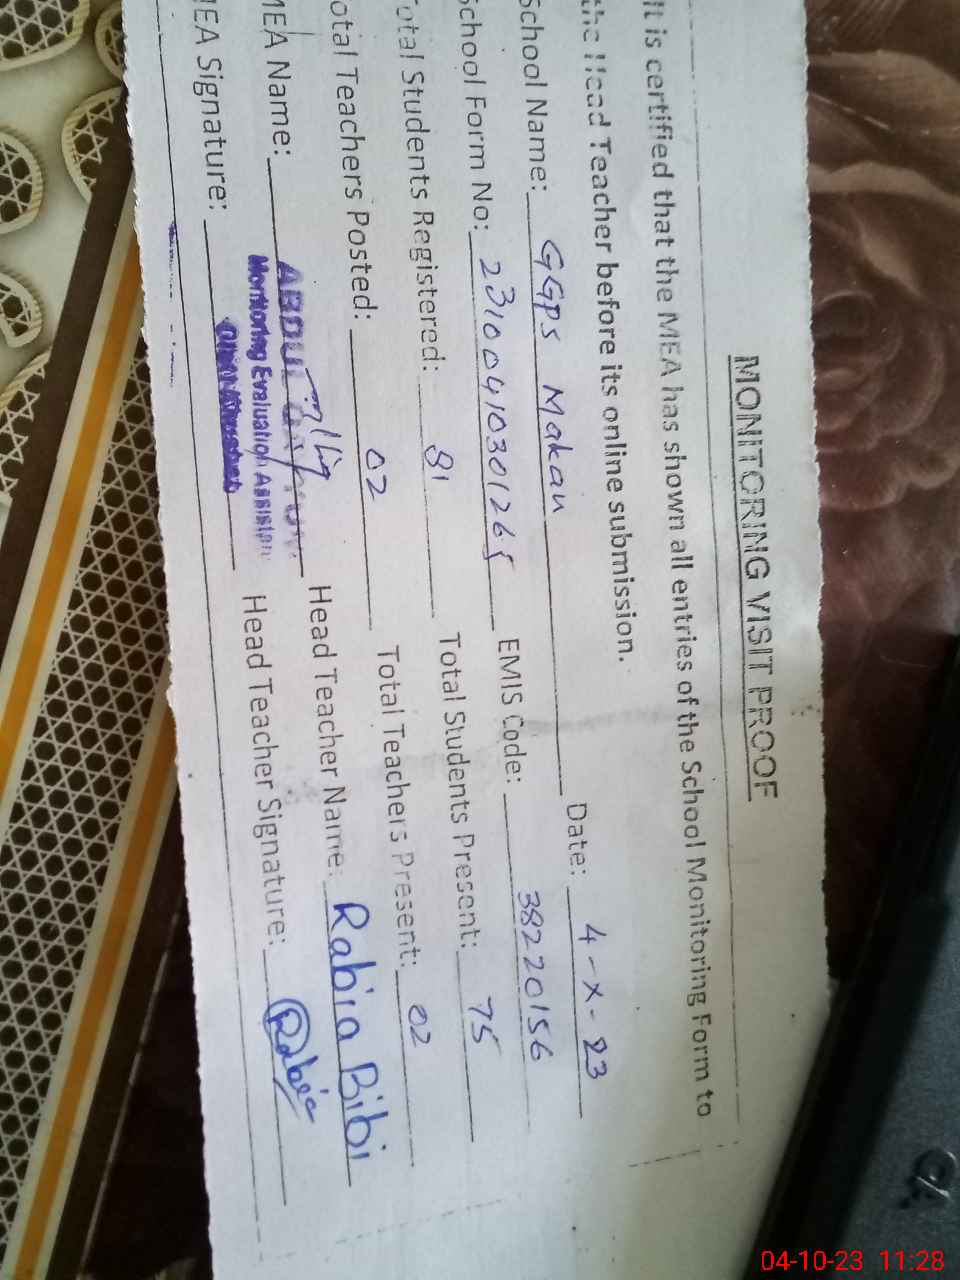 MONITORING VISIT PROOF
It is certified that the MEA has shown all entries of the School Monitoring Form to
the Head Teacher before its online submission.
School Name: GGPS Makan Date: 4-X-23
School Form No: 23100410301265 EMIS Code: 38220156
Total Students Registered: 81 Total Students Present: 75
Total Teachers Posted: 02 Total Teachers Present: 02
MEA Name: ABDUL Head Teacher Name: Rabia Bibi
Monitoring Evaluation Assistan
MEA Signature: Head Teacher Signature: Rabia
04-10-23 11:28